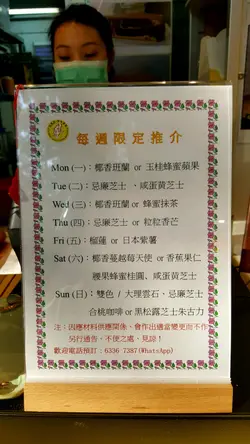 每週限定推介
Mon (一)：椰香班蘭 or 玉桂蜂蜜蘋果
Tue (二)：忌廉芝士 、咸蛋黃芝士
Wed (三)：椰香班蘭 or 蜂蜜抹茶
Thu (四)：忌廉芝士 or 粒粒香芒
Fri (五)：榴蓮 or 日本紫薯
Sat (六)：椰香蔓越莓天使 or 香蕉果仁
腰果蜂蜜桂圓、咸蛋黃芝士
Sun (日)：雙色 / 大理雲石、忌廉芝士
合桃咖啡 or 黑松露芝士朱古力
注：因應材料供應關係，會作出適當變更而不作
另行通告，不便之處，見諒！
歡迎電話預訂：6336 7387(WhatsApp)